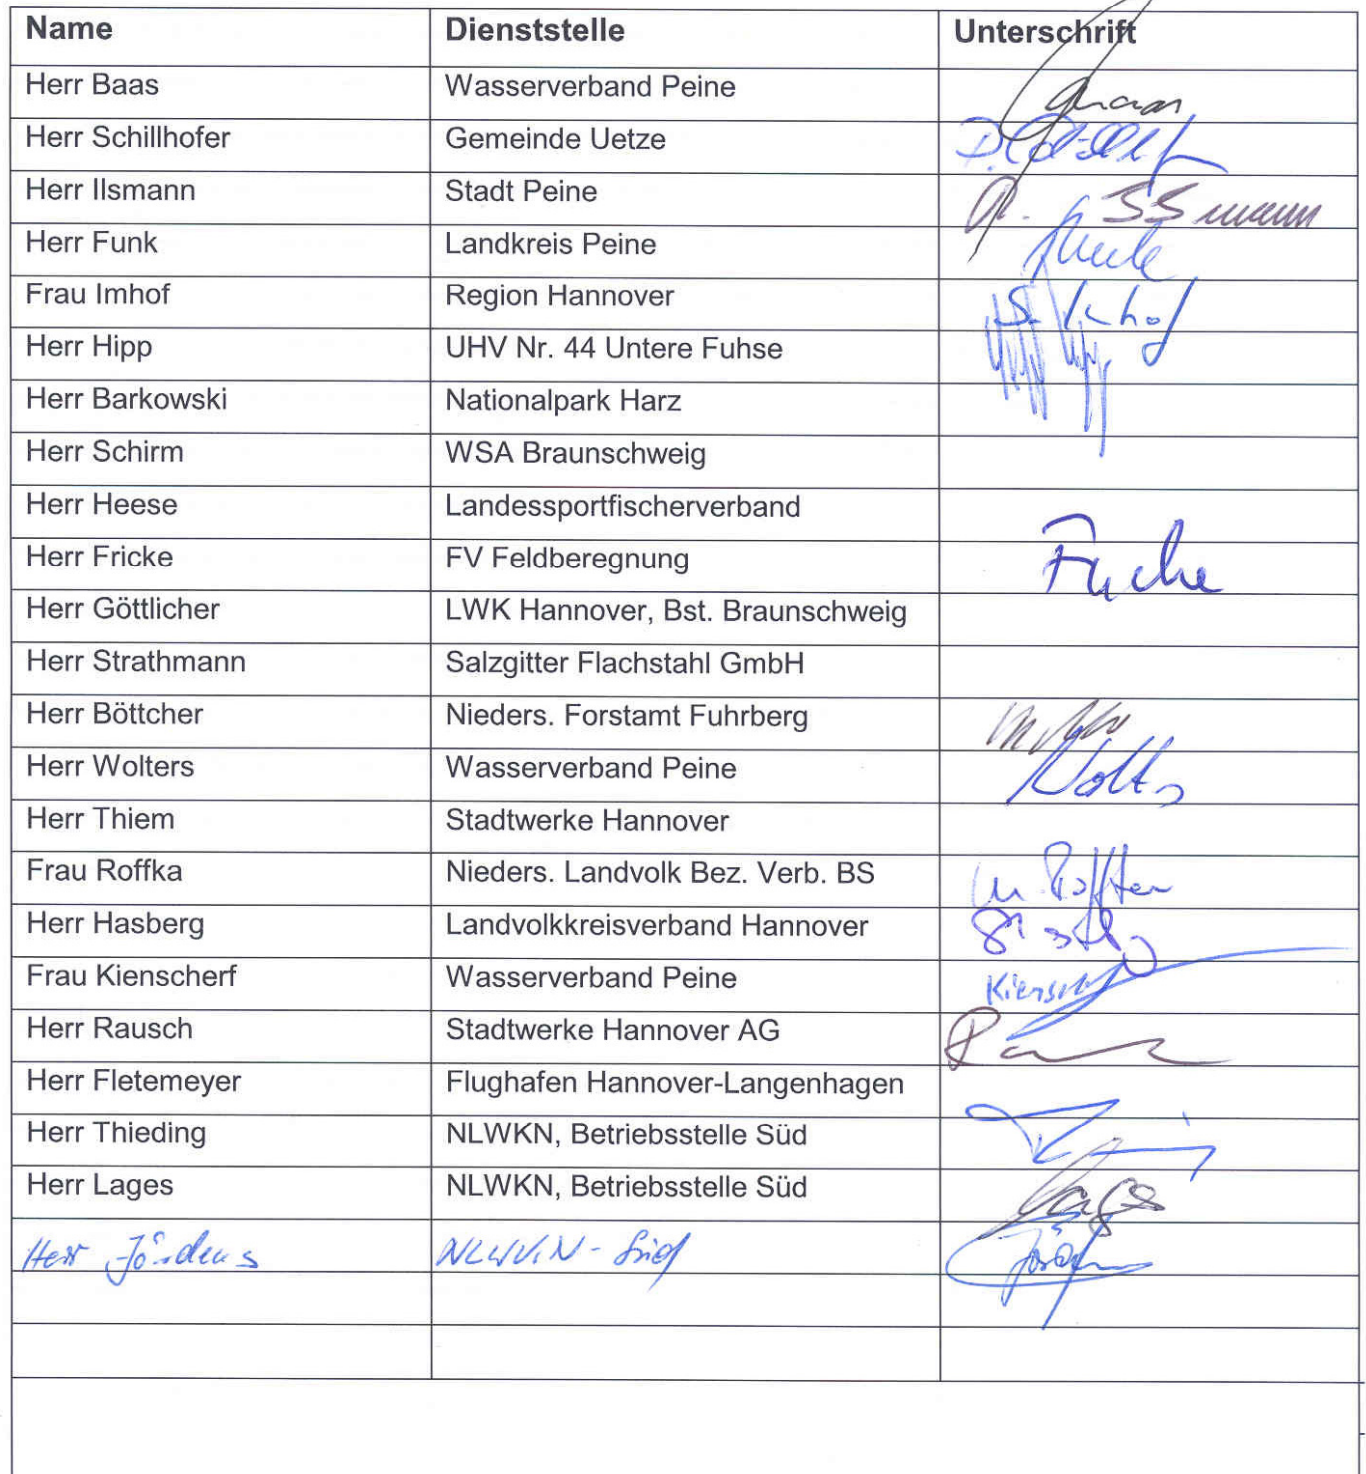 Name Dienststelle Unterschrift
Herr Baas Wasserverband Peine
Herr Schillhofer Gemeinde Uetze
Herr Ilsmann Stadt Peine
Herr Funk Landkreis Peine
Frau Imhof Region Hannover S. Imhof
Herr Hipp UHV Nr. 44 Untere Fuhse
Herr Barkowski Nationalpark Harz
Herr Schirm WSA Braunschweig
Herr Heese Landessportfischerverband
Herr Fricke FV Feldberegnung Fricke
Herr Göttlicher LWK Hannover, Bst. Braunschweig
Herr Strathmann Salzgitter Flachstahl GmbH
Herr Böttcher Nieders. Forstamt Fuhrberg
Herr Wolters Wasserverband Peine
Herr Thiem Stadtwerke Hannover
Frau Roffka Nieders. Landvolk Bez. Verb. BS
Herr Hasberg Landvolkkreisverband Hannover
Frau Kienscherf Wasserverband Peine
Herr Rausch Stadtwerke Hannover AG
Herr Fletemeyer Flughafen Hannover-Langenhagen
Herr Thieding NLWKN, Betriebsstelle Süd
Herr Lages NLWKN, Betriebsstelle Süd Lages
Herr Jördens NLWKN - Süd